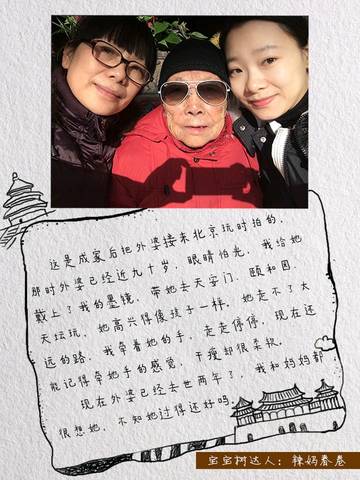 这是成家后把外婆接来北京玩时拍的，
那时外婆已经近九十岁，眼睛怕光，我给她
戴上了我的墨镜，带她去天安门、颐和园、
天坛玩，她高兴得像孩子一样。她走不了太
远的路，我牵着她的手，走走停停，现在还
能记得牵她手的感觉，干瘦却很柔软。
现在外婆已经去世两年了，我和妈妈都
很想她，不知她过得还好吗。
宝宝树达人：辣妈春卷